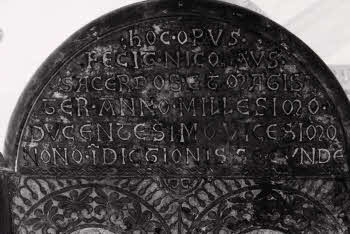 ·HOC·OPUS·
FECIT·NICOLAUS·
SACERDOS·ET·MAGIS
TER·ANNO·MILLESIMO·
DUCENTESIMO·VICESIMO
NONO·IDICTIONIS·SECUNDE